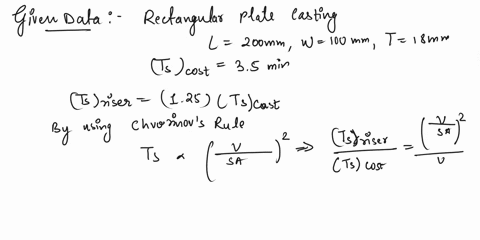 Given Data :- Rectangular plate casting
L = 200mm, W = 100 mm, T = 18mm
(Ts)cast = 3.5 min
(Ts)riser = (1.25) (Ts)cast
By using Chvorinov's Rule
Ts ∝ (V/SA)² ⇒ (Ts)riser/(Ts)cast = (V/SA)²/V